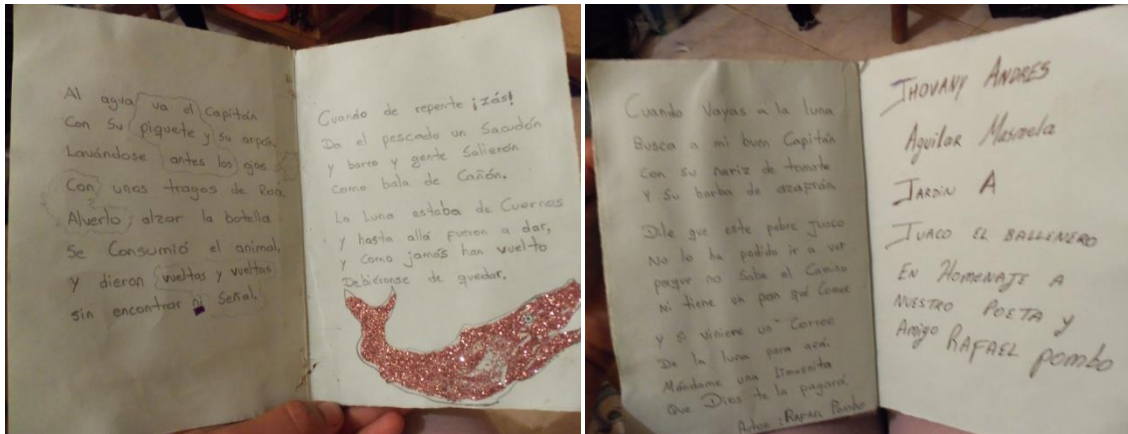 Al agua va el Capitán
Con su piquete y su arpón,
Lavándose antes los ojos
Con unos tragos de Ron.
Alverlo alzar la botella
Se Consumió el animal,
y dieron vueltas y vueltas
sin encontrar ni Señal.
Cuando de repente ¡zás!
Da el pescado un Sacudón
y barco y gente Salierón
como bala de Cañón.
La Luna estaba de Cuernos
y hasta allá fueron a dar,
y como jamás han vuelto
Debiéronse de quedar.
Cuando Vayas a la luna
Busca a mi buen Capitán
con su nariz de tomate
Y Su barba de azafrán
Dile que este pobre Juaco
No lo ha podido ir a ver
porque no Sabe el Camino
ni tiene un pan qué Comer
y si viniere un Correo
De la luna para acá.
Mándame una Limosnita
Que Dios te la pagará
Autor: Rafael Pombo
JHOVANY ANDRES
Aguilar
JARDIN A
JUACO EL BALLENERO
EN HOMENAJE A
NUESTRO POETA y
Amigo RAFAEL pombo